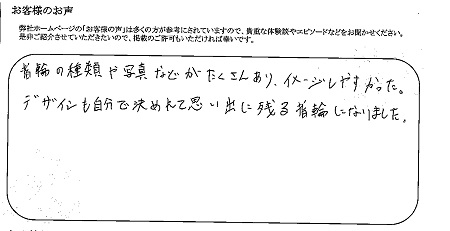 お客様のお声
弊社ホームページの「お客様の声」は多くの方が参考にされていますので、貴重な体験談やエピソードなどをお聞かせください。
是非ご紹介させていただきたいので、掲載のご許可もいただければ幸いです。
指輪の種類や写真などがたくさんあり、イメージしやすかった。
デザインも自分で決めれて思い出に残る指輪になりました。